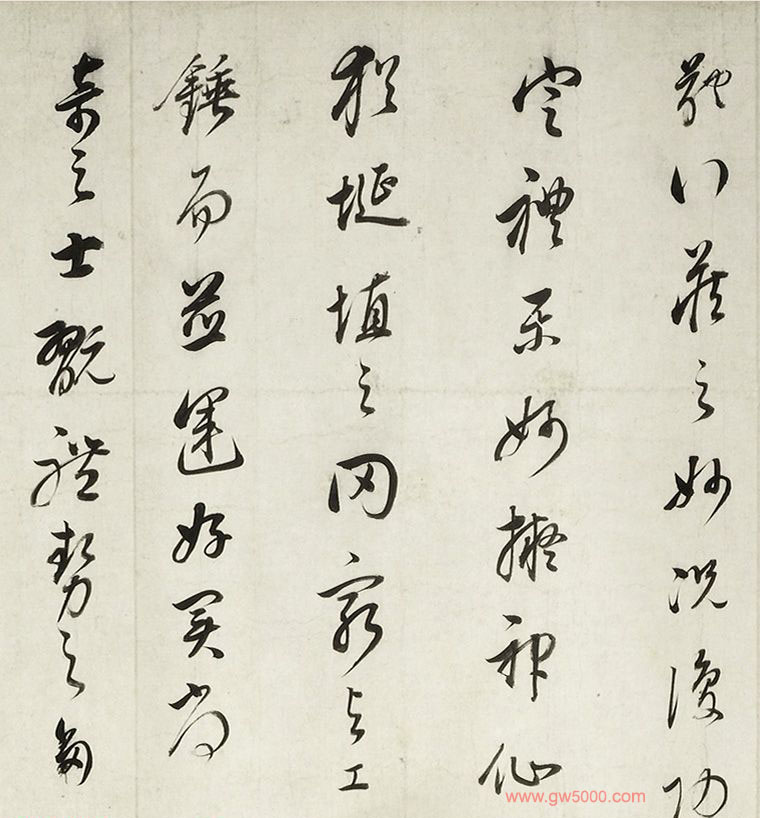 行藏之妙況復功
定禮樂妙擬神仙
猶埏埴之罔窮與工
錘而並運好異尚
奇之士翫體勢之
www.gw5000.com